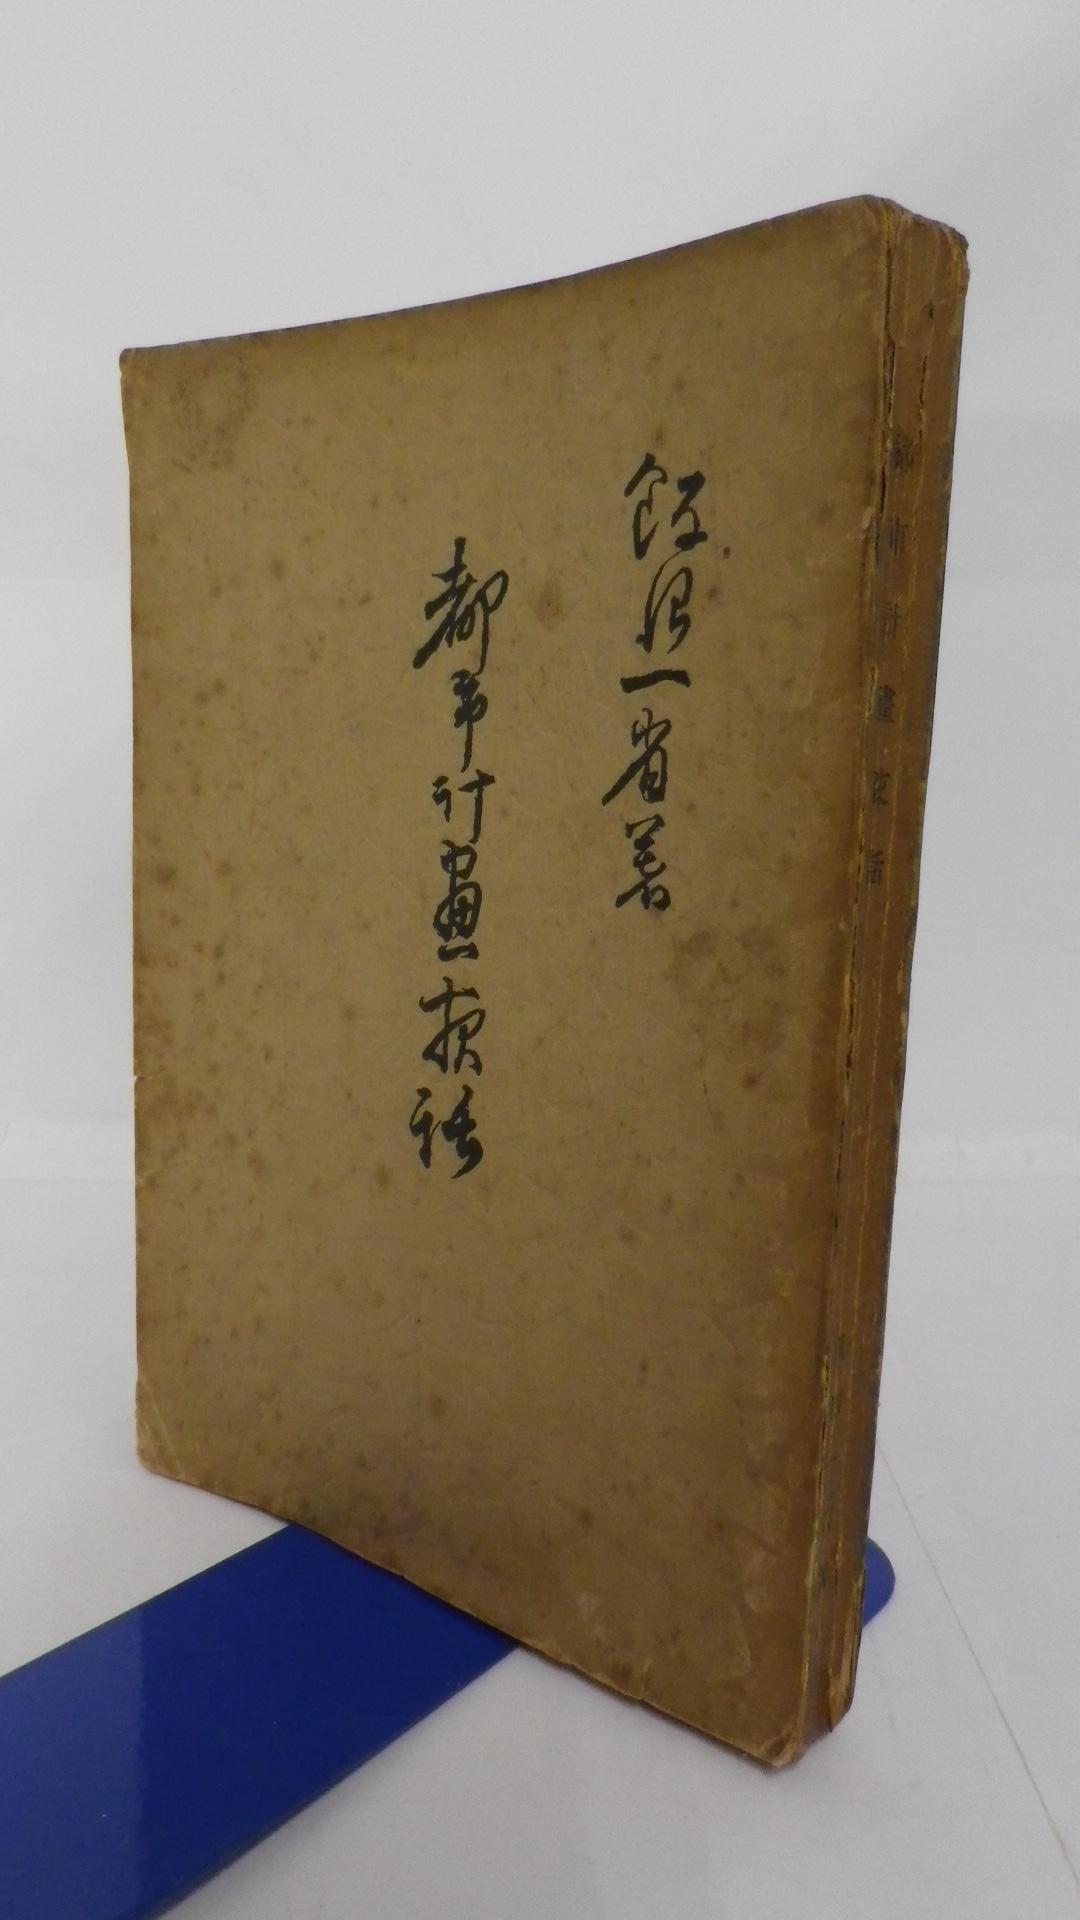 飯沼一省著
都市計畫夜話
都市計畫夜話